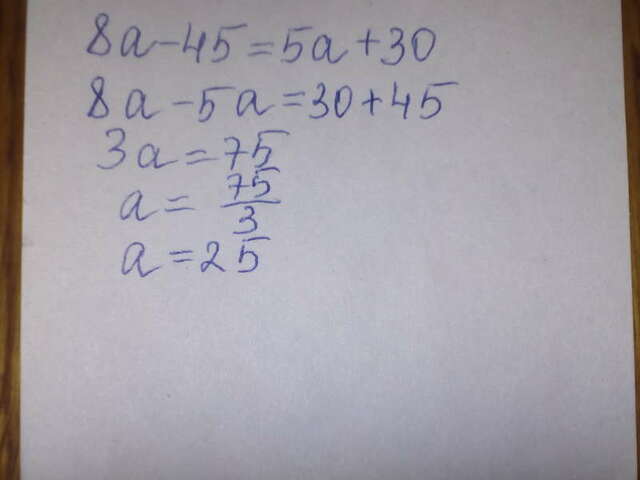 8a-45=5a+30
8a-5a=30+45
3a=75
a=75/3
a=25